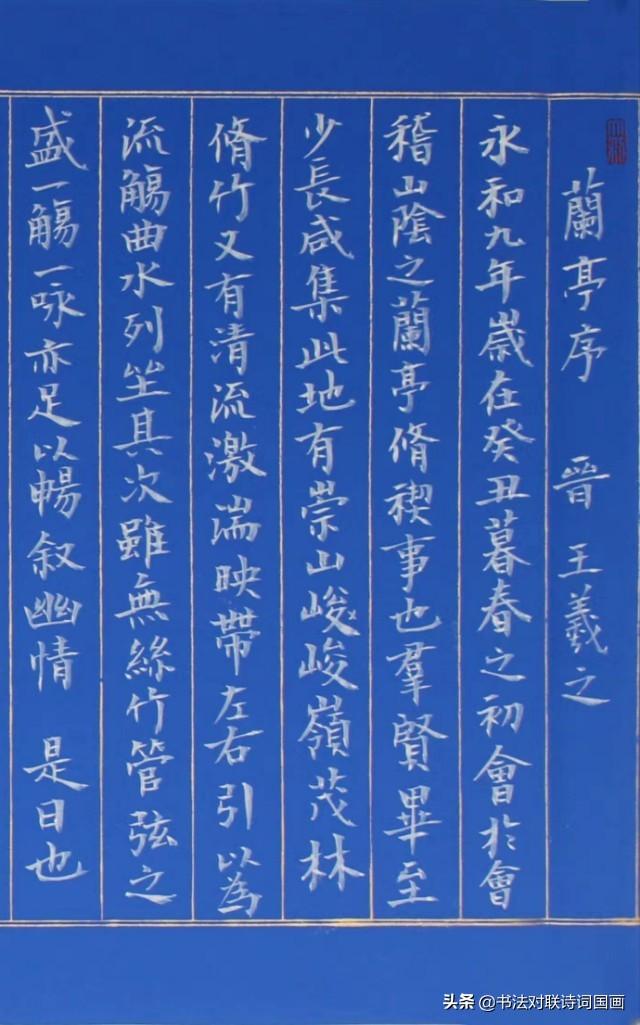 蘭亭序 晉 王羲之
永和九年歲在癸丑暮春之初會於會
稽山陰之蘭亭脩禊事也羣賢畢至
少長咸集此地有崇山峻峻嶺茂林
脩竹又有清流激湍映帶左右引以為
流觴曲水列坐其次雖無絲竹管弦之
盛一觴一咏亦足以暢叙幽情 是日也
头条 @书法对联诗词国画